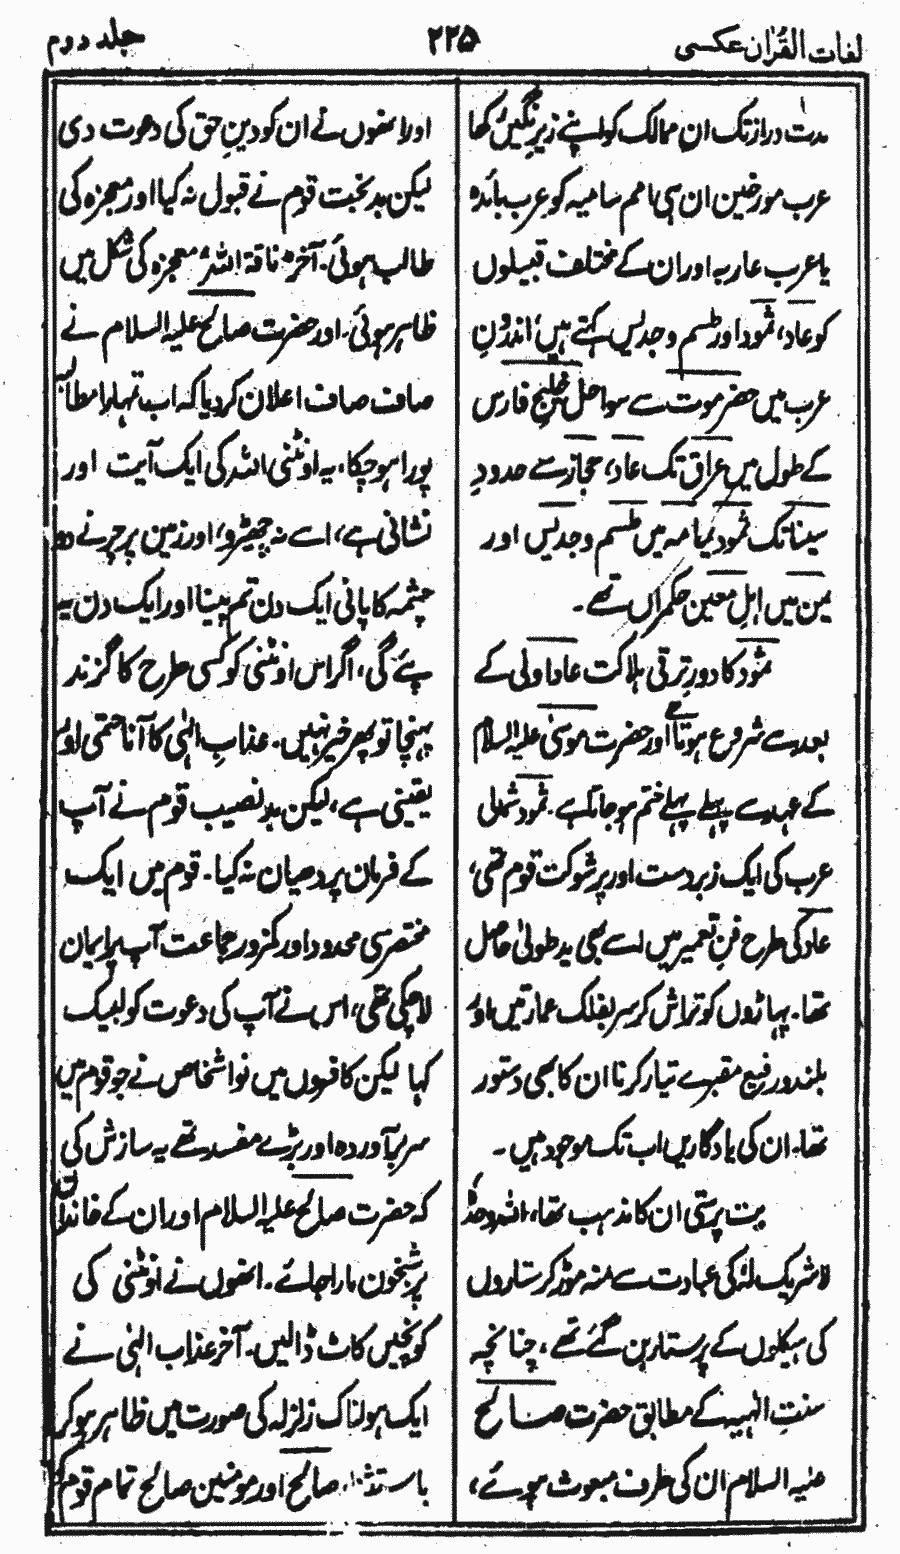 لغات القرآن عکسی
۲۲۵
جلد دوم
مدت دراز تک ان ممالک کو اپنے زیر نگیں رکھا
عرب مورخین ان سی امم سامیہ کو عرب بائدہ
یا عرب عاربہ اور ان کے مختلف قبیلوں
کو عاد، ثمود اور طسم و جدیس کہتے ہیں، اندرونِ
عرب میں حضرموت سے سواحل خلیج فارس
کے طول میں عراق تک عاد، حجاز سے حدودِ
سینا تک ثمود یمامہ میں طسم و جدیس اور
یمن میں اہلِ معین حکمراں تھے۔
ثمود کا دورِ ترقی ہلاکت عاد اولیٰ کے
بعد سے شروع ہوتا ہے اور حضرت موسیٰ علیہ السلام
کے عہد سے پہلے پہلے ختم ہو جاتا ہے۔ ثمود شمالی
عرب کی ایک زبردست اور پر شوکت قوم تھی،
عاد کی طرح فنِ تعمیر میں اسے بھی یدِ طولیٰ حاصل
تھا۔ پہاڑوں کو تراش کر سر بفلک عمارتیں اور
بلند و رفیع مقبرے تیار کرنا ان کا بھی دستور
تھا۔ ان کی یادگاریں اب تک موجود ہیں۔
بت پرستی ان کا مذہب تھا، اللہ وحدہٗ
لا شریک لہٗ کی عبادت سے منہ موڑ کر ستاروں
کی ہیکلوں کے پرستار بن گئے تھے، چنانچہ
سنتِ الٰہیہ کے مطابق حضرت صالح
علیہ السلام ان کی طرف مبعوث ہوئے،
اور انھوں نے ان کو دینِ حق کی دعوت دی
لیکن بدبخت قوم نے قبول نہ کیا اور معجزہ کی
طالب ہوئی۔ آخر ناقۃ اللہ معجزہ کی شکل میں
ظاہر ہوئی۔ اور حضرت صالح علیہ السلام نے
صاف صاف اعلان کر دیا کہ اب تمہارا مطالبہ
پورا ہو چکا، یہ اونٹنی اللہ کی ایک آیت اور
نشانی ہے، اسے نہ چھیڑو، اور زمین پر چرنے دو
چشمہ کا پانی ایک دن تم پینا اور ایک دن یہ
پئے گی، اگر اس اونٹنی کو کسی طرح کا گزند
پہنچا تو پھر خیر نہیں۔ عذابِ الٰہی کا آنا حتمی اور
یقینی ہے، لیکن بد نصیب قوم نے آپ
کے فرمان پر دھیان نہ کیا۔ قوم میں ایک
مختصر سی محدود اور کمزور جماعت آپ پر ایمان
لا چکی تھی، اس نے آپ کی دعوت کو لبیک
کہا لیکن کافروں میں نو اشخاص نے جو قوم میں
سربرآوردہ اور بڑے مفسد تھے یہ سازش کی
کہ حضرت صالح علیہ السلام اور ان کے خاندان
پر شبخون مارا جائے۔ انھوں نے اونٹنی کی
کونچیں کاٹ ڈالیں۔ آخر عذاب الٰہی نے
ایک ہولناک زلزلہ کی صورت میں ظاہر ہو کر
باستثناء صالح اور مومنین صالح تمام قوم کو